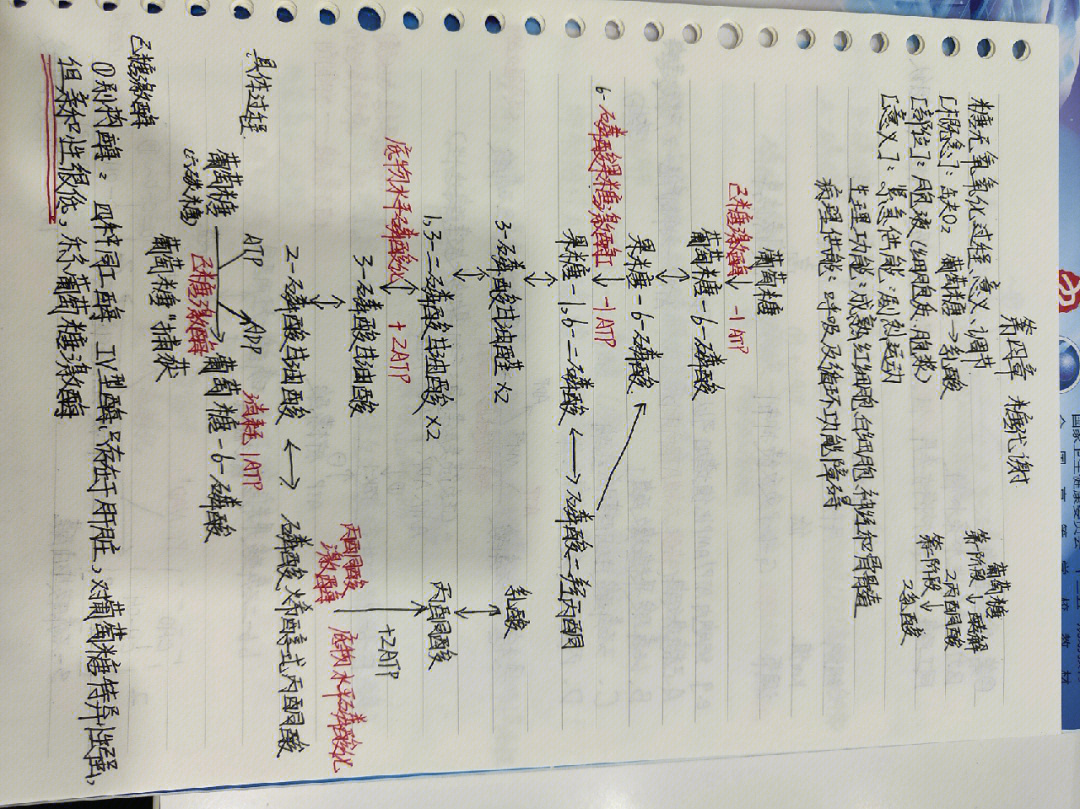 第四章 糖代谢
糖无氧氧化过程、意义、调节
[概念]：缺O₂ 葡萄糖→乳酸
[部位]：胞液(细胞质、胞浆)
[意义]：紧急供能：剧烈运动
生理功能：成熟红细胞、白细胞、神经和骨骨髓
病理供能：呼吸及循环功能障碍
葡萄糖
第一阶段↓酵解
2丙酮酸
第二阶段↓
2乳酸
葡萄糖
己糖激酶↓ -1ATP
葡萄糖-6-磷酸
↕
果糖-6-磷酸
6-磷酸果糖激酶Ⅰ↓ -1ATP
果糖-1,6-二磷酸 ⟷ 磷酸二羟丙酮
↕
3-磷酸甘油醛 ×2
↕
1,3-二磷酸甘油酸 ×2
底物水平磷酸化↕ +2ATP
3-磷酸甘油酸
↕
2-磷酸甘油酸 ⟷ 磷酸烯醇式丙酮酸
丙酮酸激酶
底物水平磷酸化
+2ATP
丙酮酸
↕
乳酸
具体过程:
ATP ADP 消耗1ATP
葡萄糖→葡萄糖-6-磷酸
(六碳糖) 己糖激酶
葡萄糖"捕获
己糖激酶
①别构酶：四种同工酶 IV型酶只存在于肝脏，对葡萄糖特异性强，
但亲和性很低，亦称葡萄糖激酶
国家卫生健康委员会"十三五"规划教材
全国高等学校教材